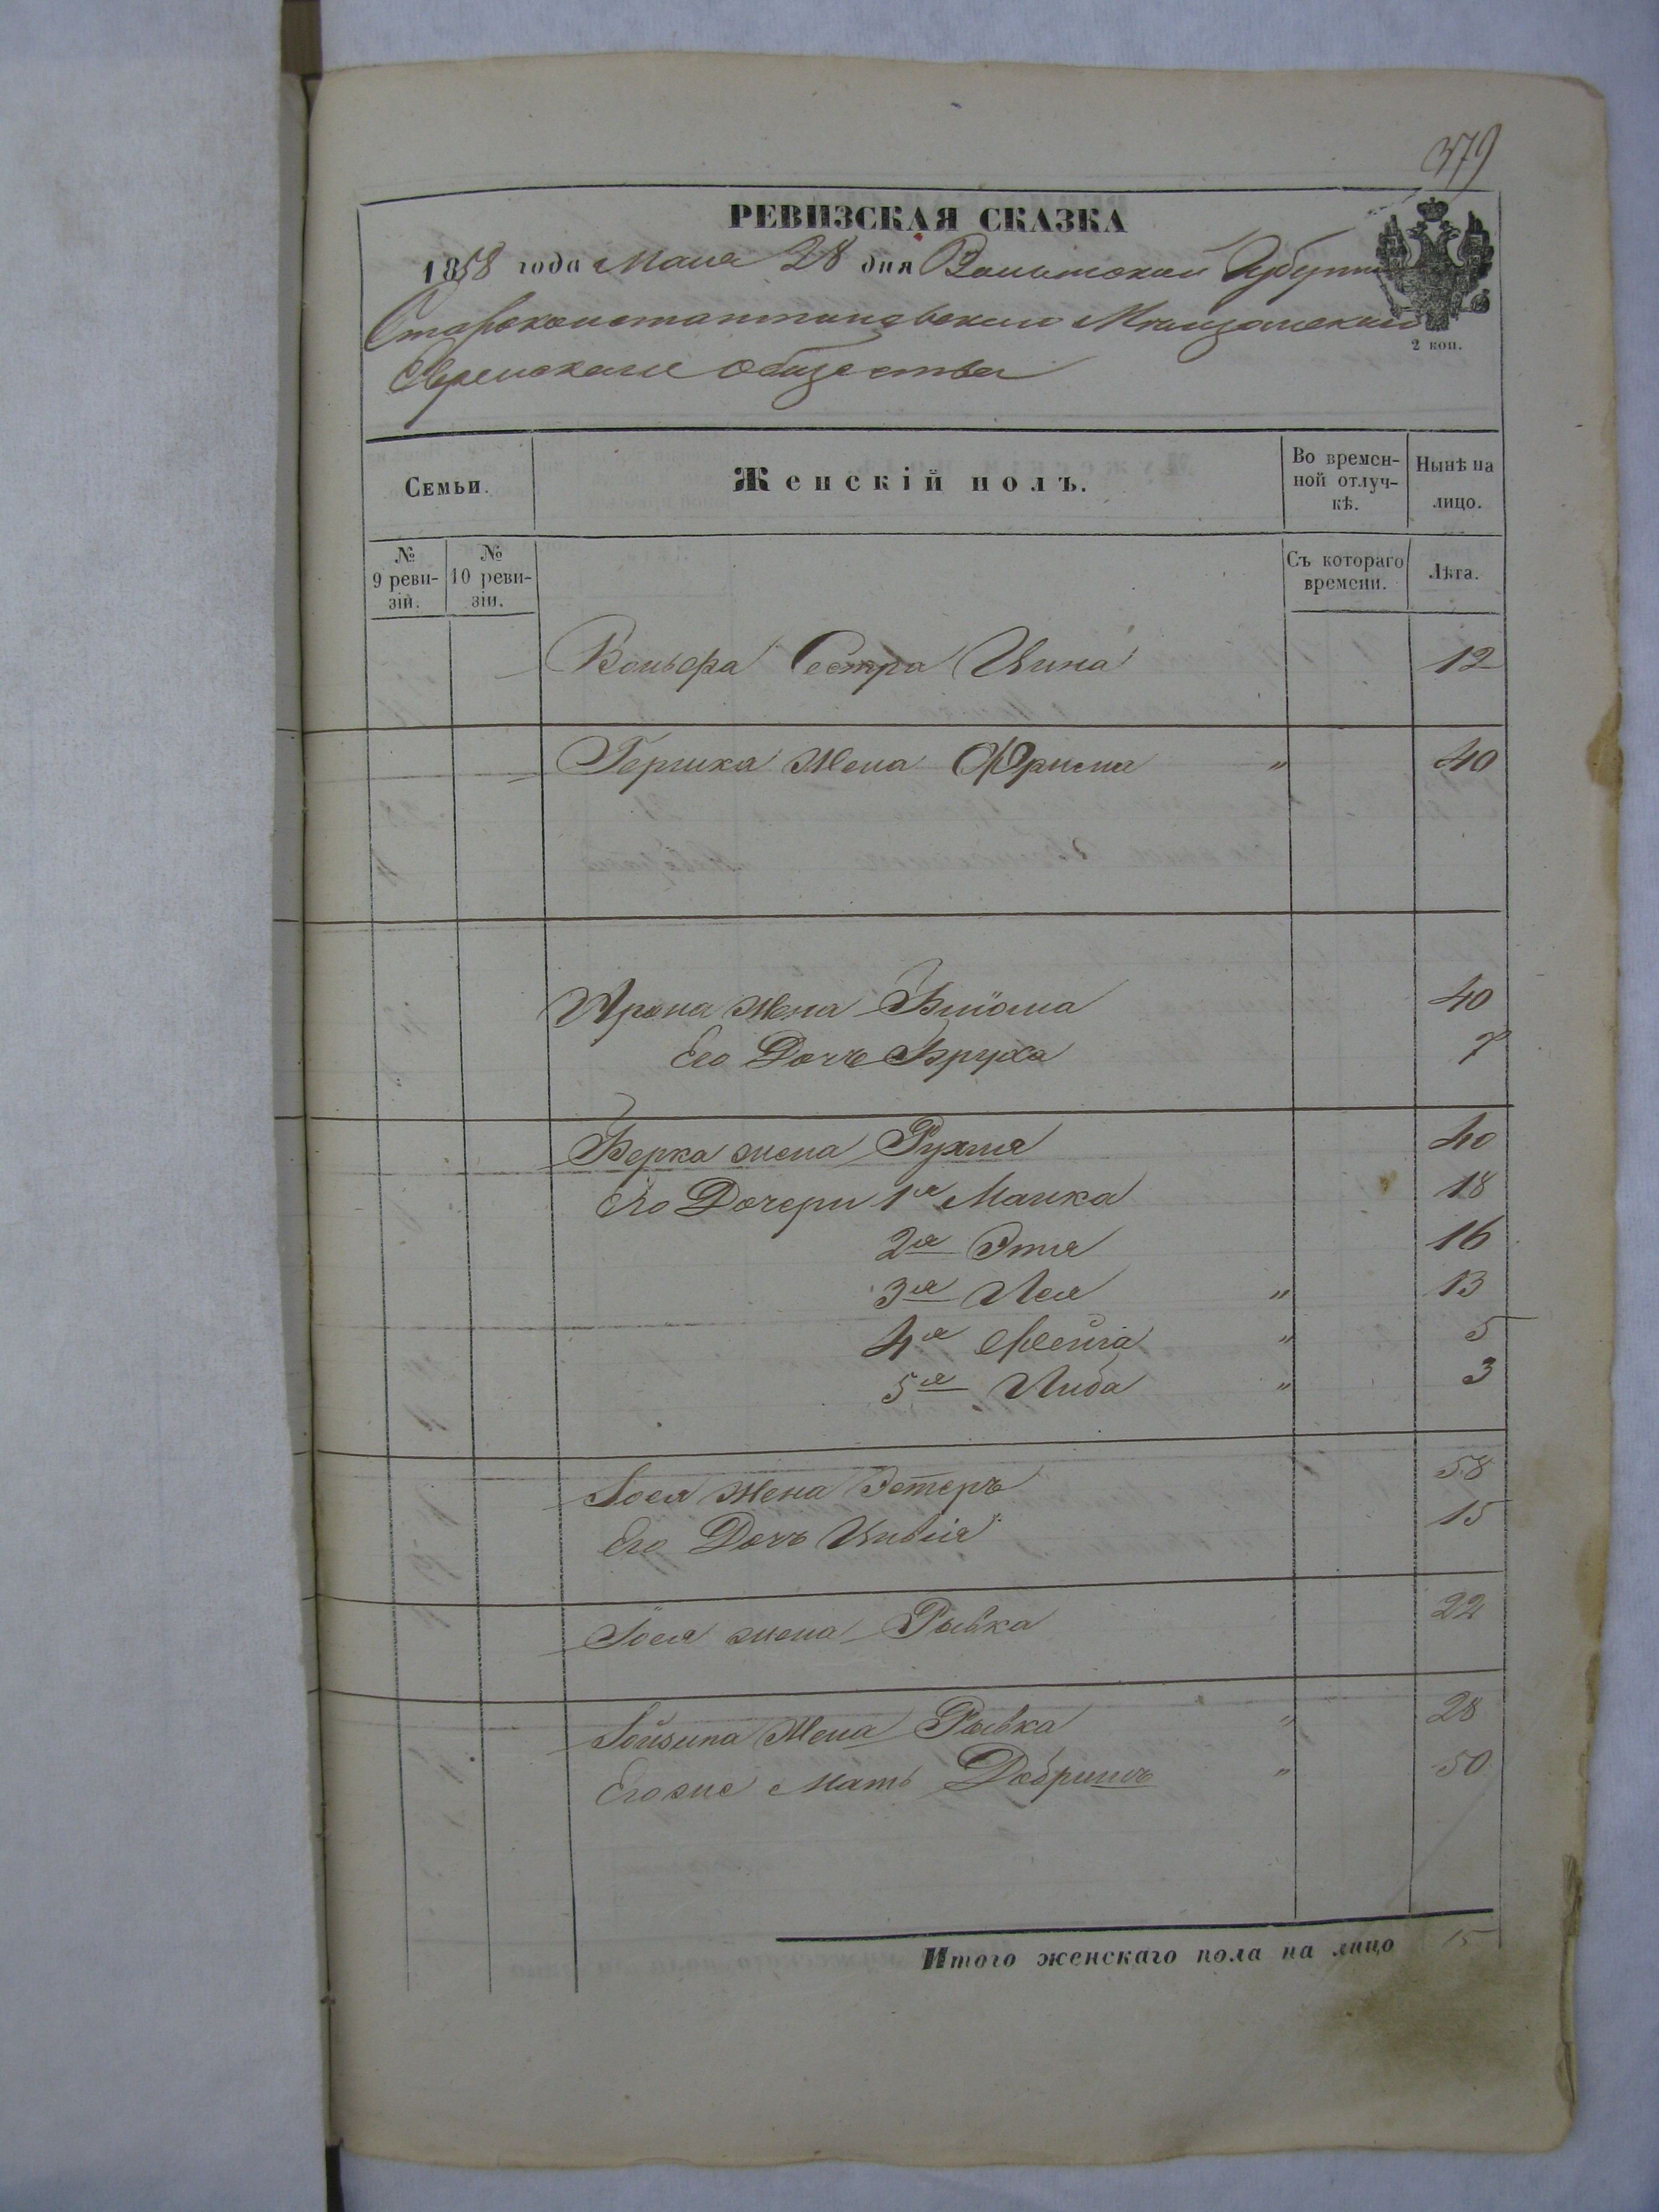 379
РЕВИЗСКАЯ СКАЗКА
1858 года Мая 28 дня Волынской Губерни
Староконстантиновскаго Мещанскаго
Еврейскаго общества
2 коп.
Семьи. Женскій полъ. Во времен-ной отлуч-кѣ. Нынѣ на лицо.
№ 9 реви-зій. № 10 реви-зіи. Съ котораго времени. Лѣта.
Вольфа Сестра Цина 12
Гершка Жена Фрима " 40
Арона Жена 40
Его Дочь Бруха 7
Берка жена Рухля 40
Его Дочери 1я Малка 18
2я Этя 16
3я Лея " 13
4я Фейга " 5
5я Либа " 3
Іося Жена Эстеръ 58
Его Дочь Цивія 15
Іося жена Рывка 22
Жена Рывка " 28
Его же Мать Добришъ " 50
Итого женскаго пола на лицо 15